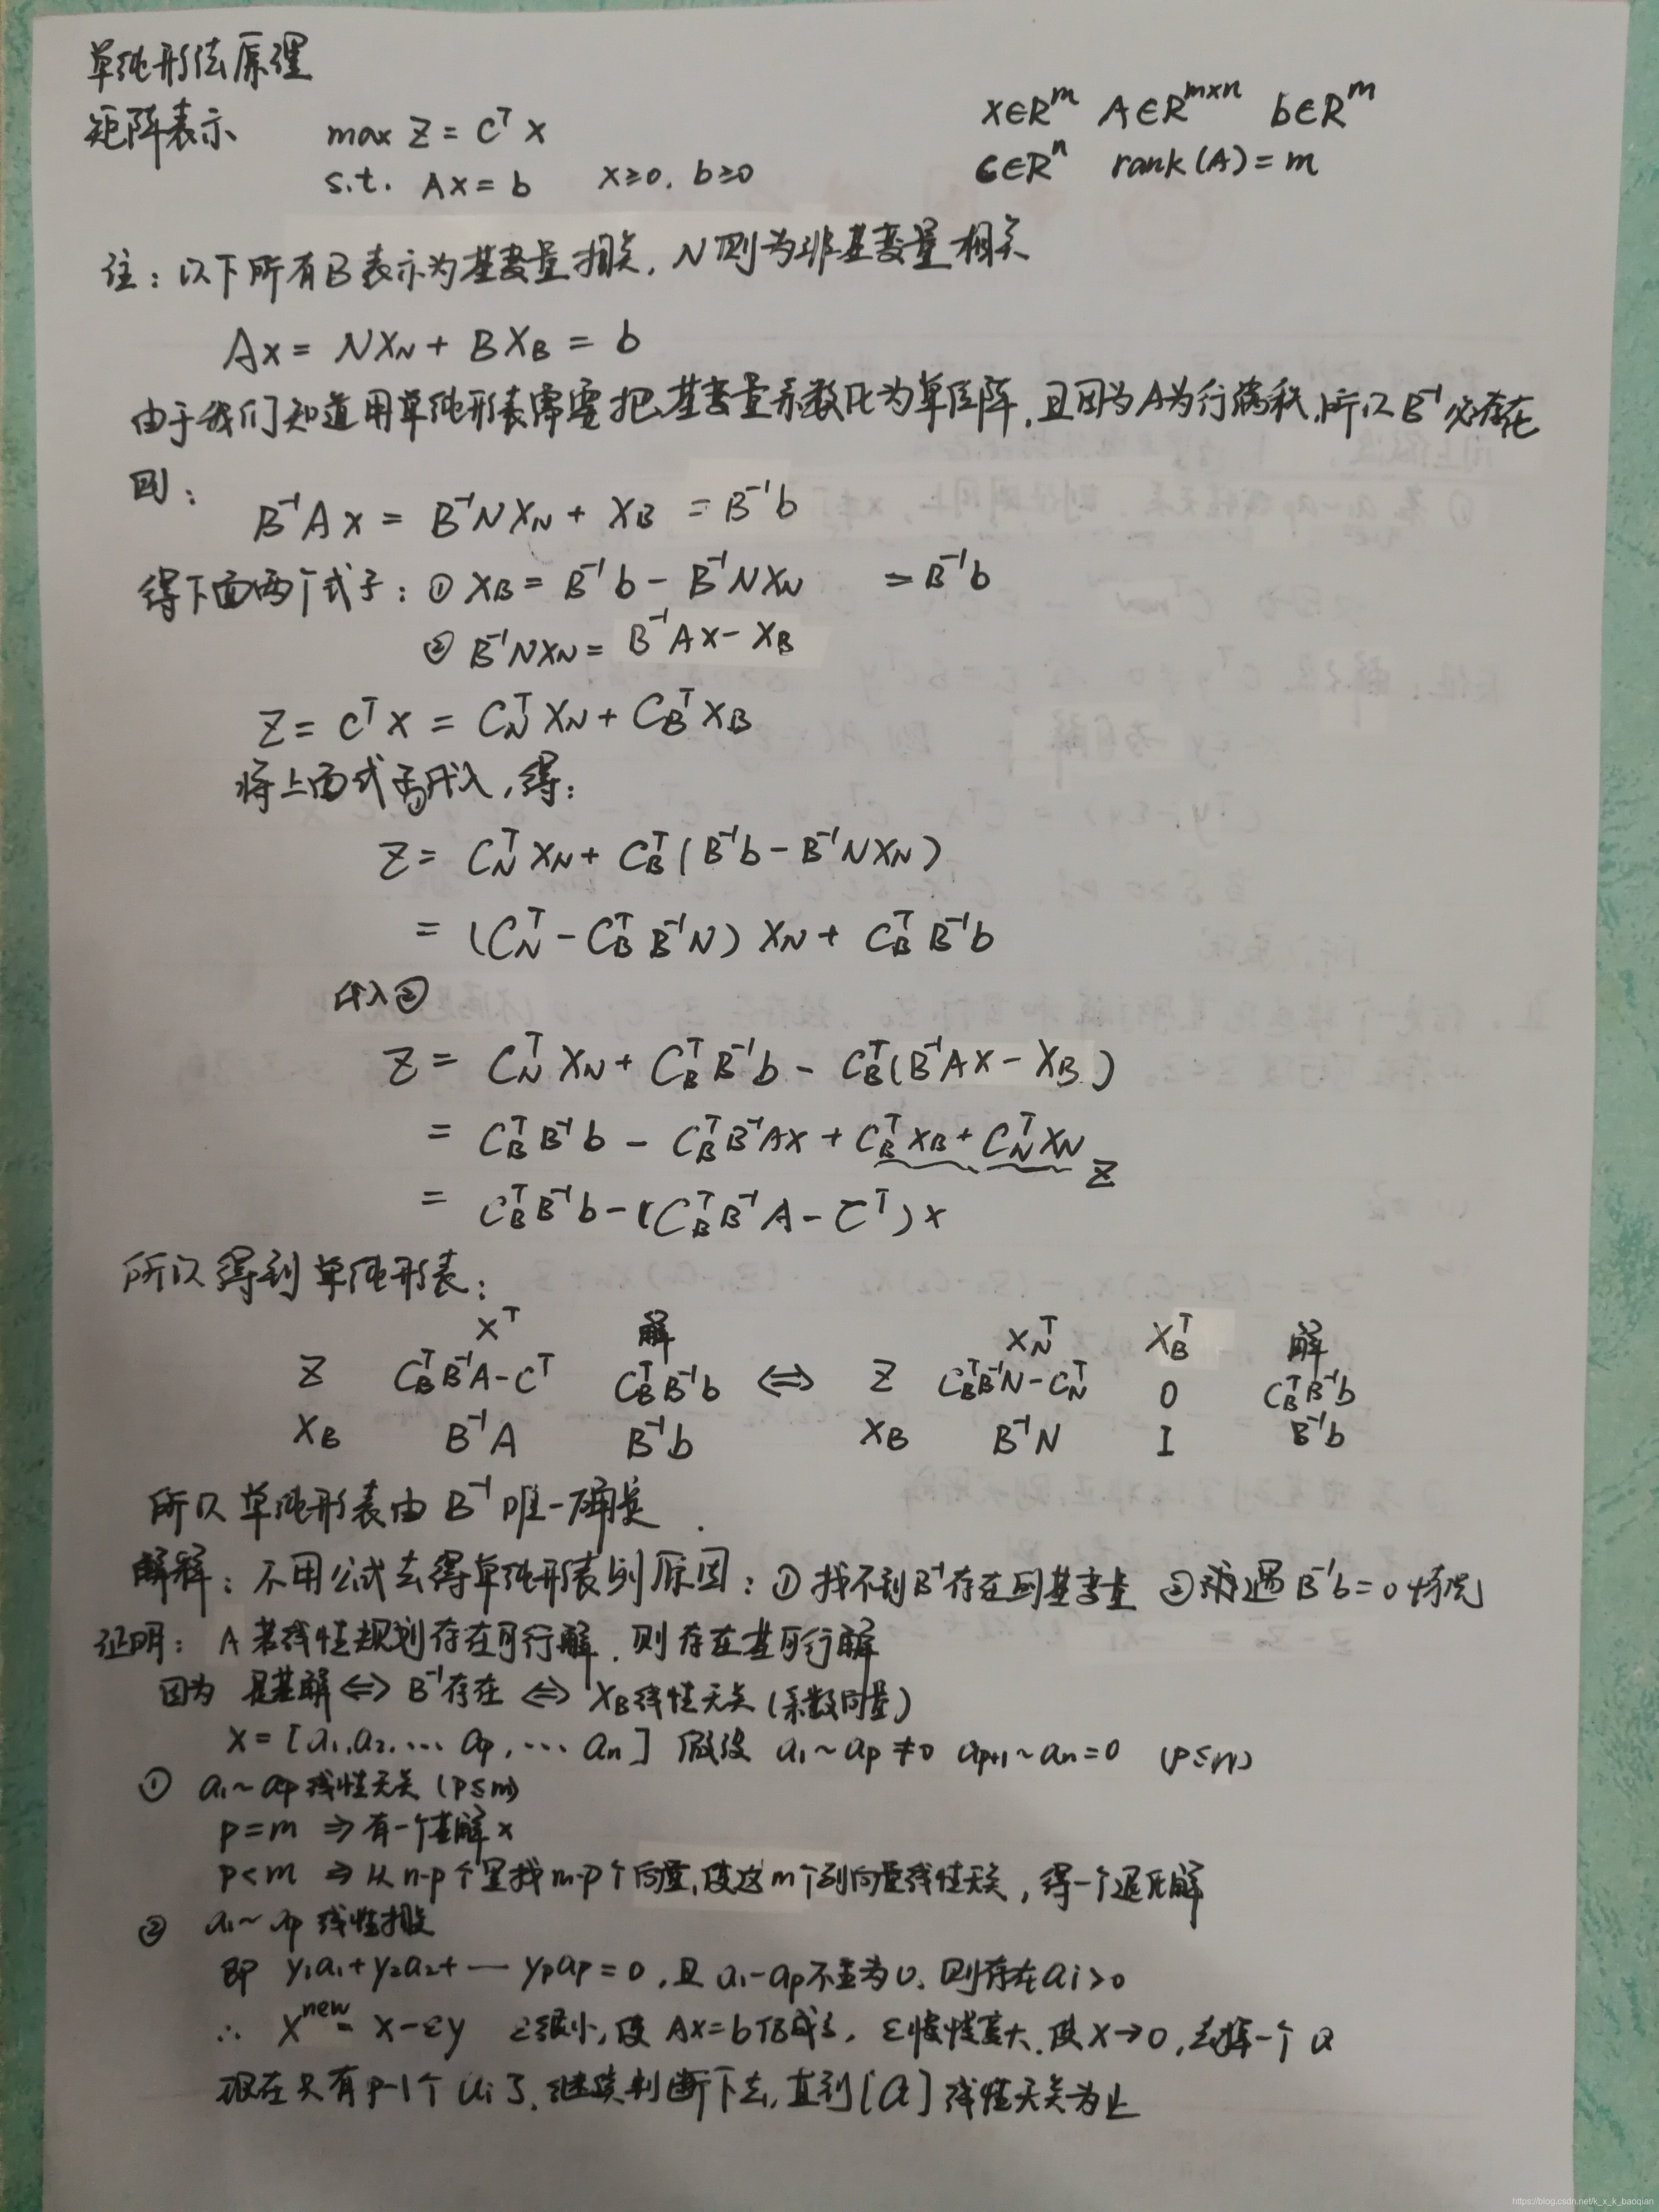 单纯形法原理
矩阵表示 max Z = C^T X X∈R^m A∈R^{m×n} b∈R^m
s.t. AX = b X≥0, b≥0 C∈R^n rank(A)=m
注：以下所有B表示为基变量相关，N则为非基变量相关
AX = NX_N + BX_B = b
由于我们知道用单纯形表需要把基变量系数化为单位阵，且因为A为行满秩，所以B^{-1}必存在
则：
B^{-1}AX = B^{-1}NX_N + X_B = B^{-1}b
得下面两个式子：① X_B = B^{-1}b - B^{-1}NX_N = B^{-1}b
② B^{-1}NX_N = B^{-1}AX - X_B
Z = C^T X = C_N^T X_N + C_B^T X_B
将上面式子代入，得：
Z = C_N^T X_N + C_B^T (B^{-1}b - B^{-1}NX_N)
= (C_N^T - C_B^T B^{-1}N) X_N + C_B^T B^{-1}b
代入②
Z = C_N^T X_N + C_B^T B^{-1}b - C_B^T (B^{-1}AX - X_B)
= C_B^T B^{-1}b - C_B^T B^{-1}AX + C_B^T X_B + C_N^T X_N Z
= C_B^T B^{-1}b - (C_B^T B^{-1}A - C^T) X
所以得到单纯形表：
X^T 解 X_N^T X_B^T 解
Z C_B^T B^{-1}A - C^T C_B^T B^{-1}b ⇔ Z C_B^T B^{-1}N - C_N^T 0 C_B^T B^{-1}b
X_B B^{-1}A B^{-1}b X_B B^{-1}N I B^{-1}b
所以单纯形表由B^{-1}唯一确定.
解释：不用公式去得单纯形表的原因：①找不到B^{-1}存在的基变量 ②遇B^{-1}b=0情况
证明：A若线性规划存在可行解，则存在基可行解
因为 是基解⇔B^{-1}存在⇔X_B线性无关(系数向量)
X = [a_1,a_2,… a_p,… a_n] 假设 a_1~a_p≠0 a_{p+1}~a_n=0 (p≤n)
① a_1~a_p线性无关(p≤m)
p=m ⇒ 有一个基解X
p<m ⇒ 从n-p个里找m-p个向量，使这m个列向量线性无关，得一个退化解
② a_1~a_p 线性相关
即 y_1a_1+y_2a_2+…y_pa_p=0，且a_1-a_p不全为0，则存在a_i>0
∴ X^{new} = X-εy ε很小，使AX=b仍成立，ε慢慢变大，使X→0，去掉一个a
现在只有p-1个a_i了，继续判断下去，直到[a]线性无关为止
https://blog.csdn.net/k_x_k_baoqian